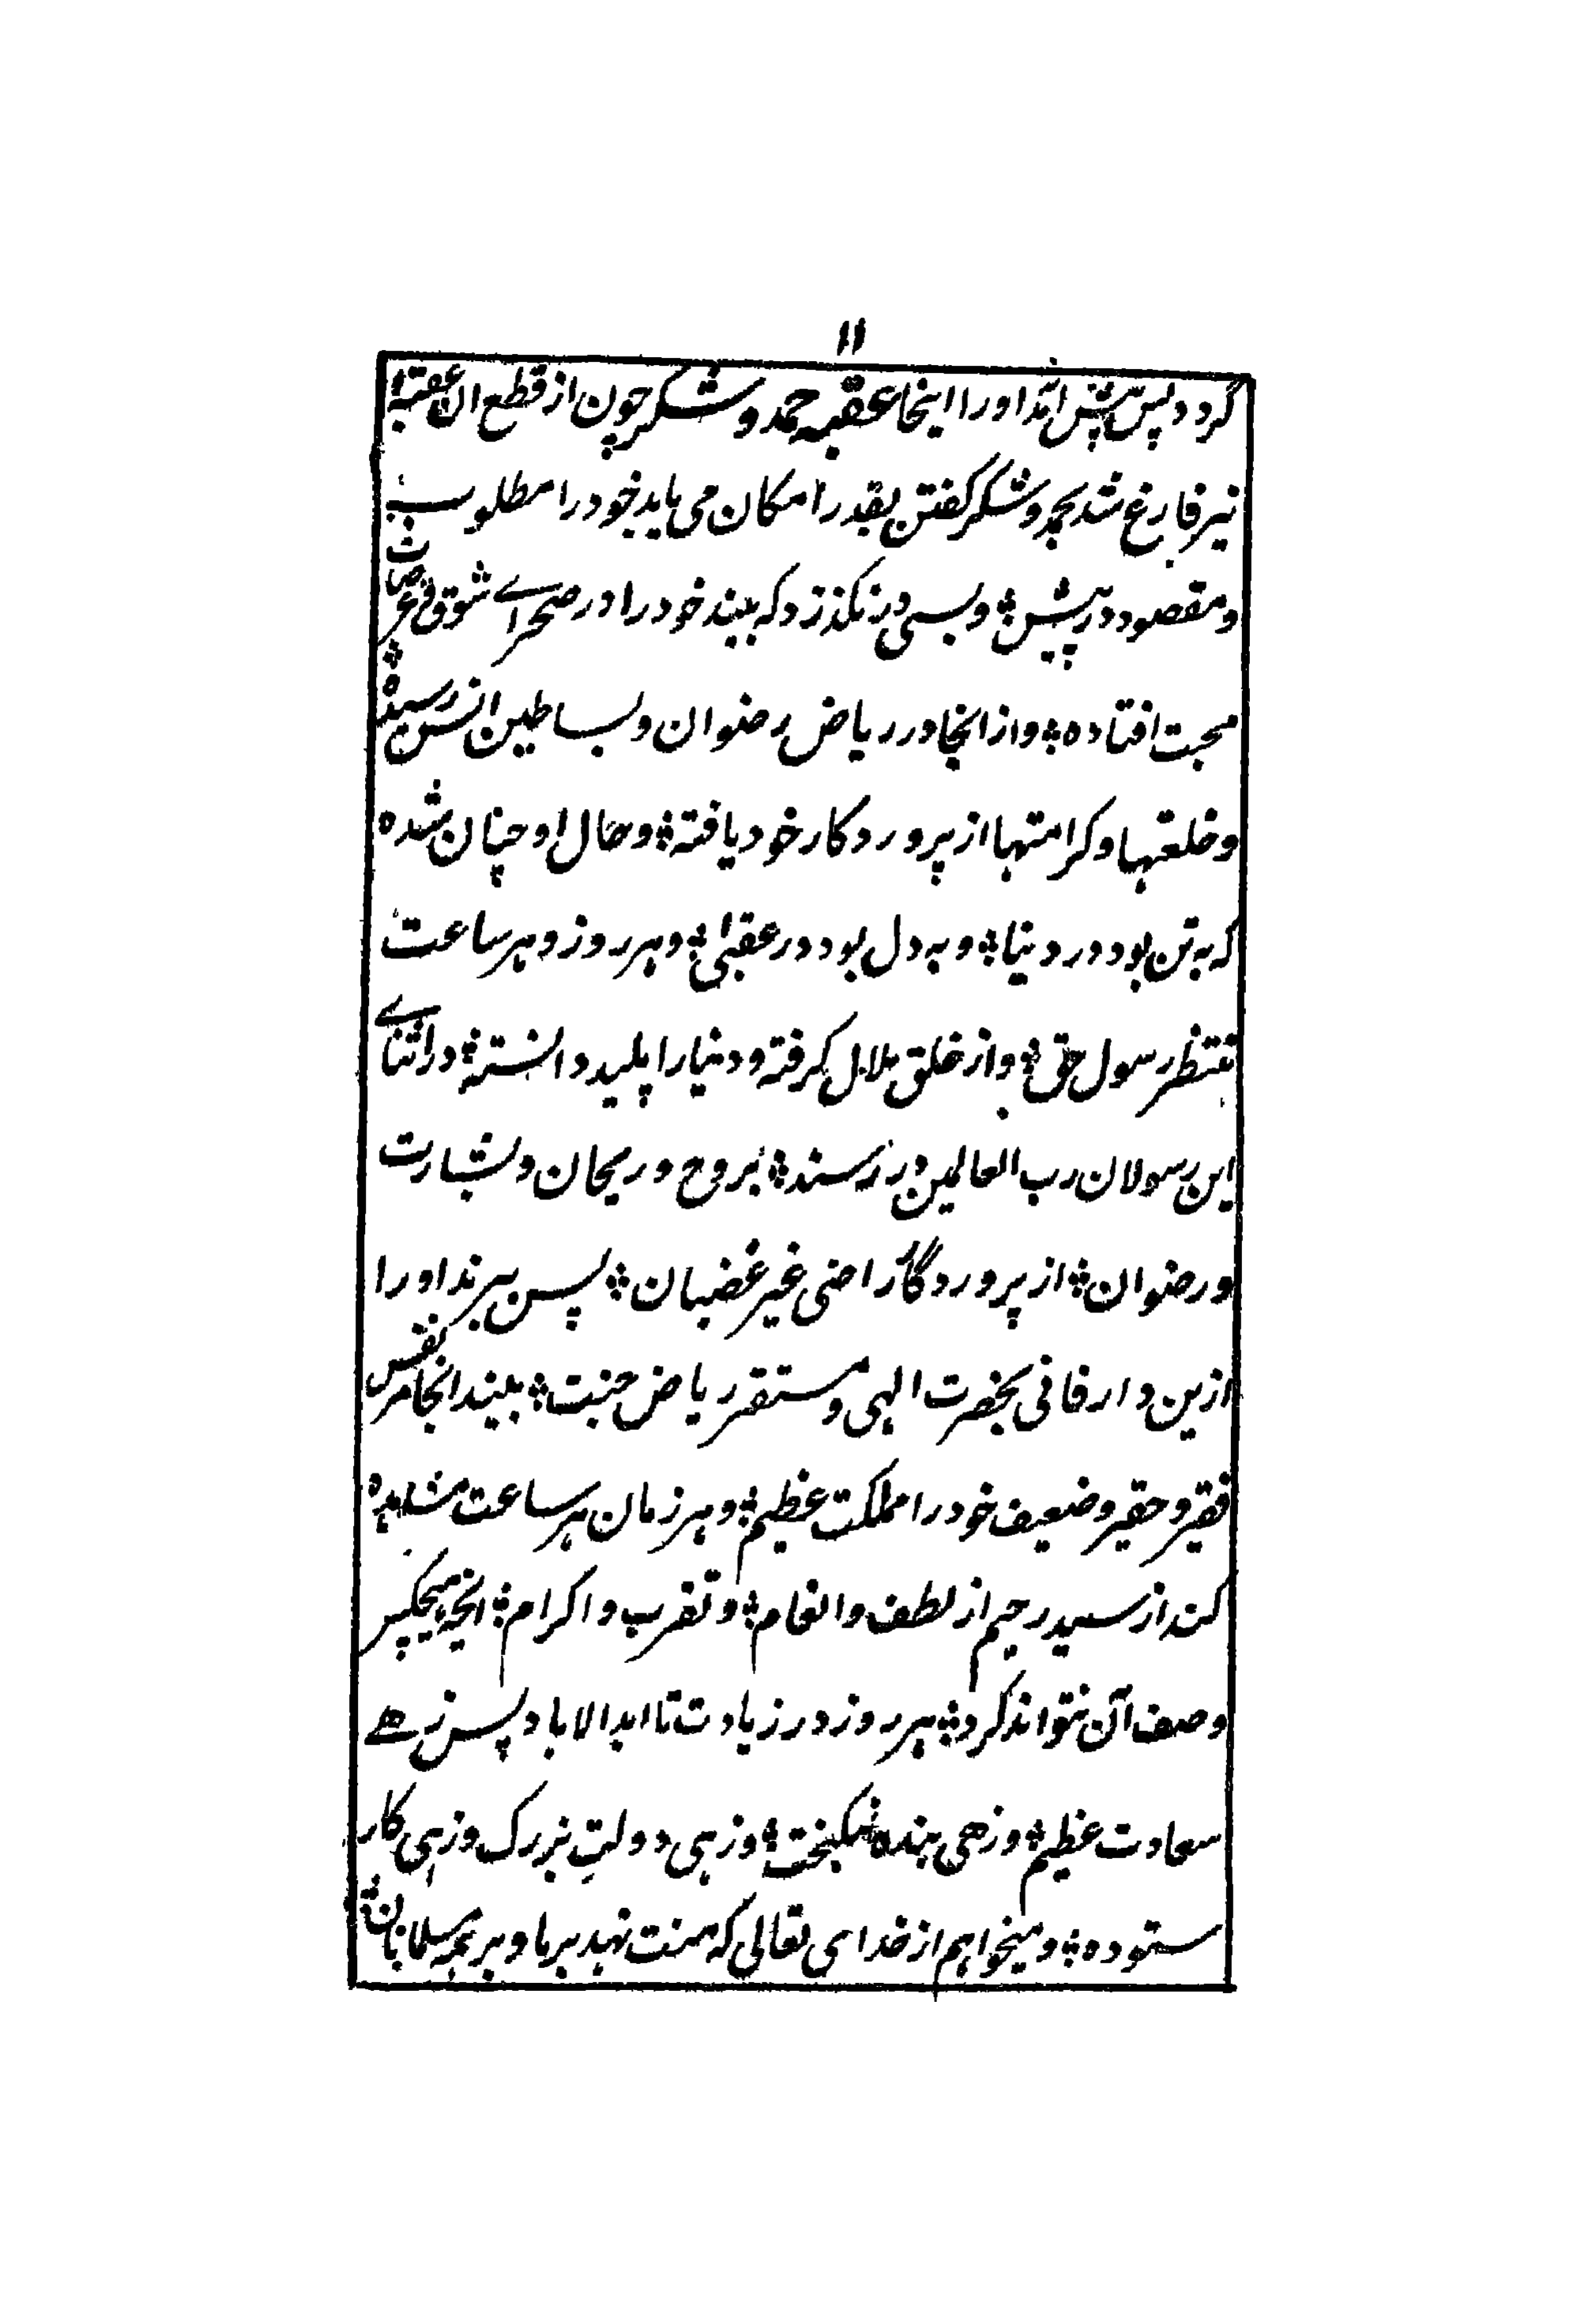 ۱۱
گردد پس پیش آید اورا اینجا عقبه حمد و شکر چون از قطع این عقبه
نیز فارغ شد بحمد و شکر گفتن بقدر امکان می یابد خود را مطلوب
و مقصود در پیش ؞ و بسی در نگذرد که بیند خود را در صحراے شوق و عرصات
محبت افتاده ؞ و از انجا در ریاض رضوان و بساطین انس رسیده ؞
و خلعتها و کرامتها از پروردکار خود یافته ؞ و حال او چنان شده
که به تن بود در دنیا ؞ و به دل بود در عقبیٰ ؞ و هر روز و هر ساعت
منتظر رسول حق ؞ و از خلق ملال گرفته و دنیا را پلید دانسته ؞ در اثناے
این رسولان رب العالمین در رسند ؞ بروح و ریحان و بشارت
و رضوان ؞ از پروردگار راضی غیر غضبان ؞ پس ببرند او را
ازین دار فانی بحضرت الهی و مستقر ریاض جنت ؞ بیند انجا مر نفس
فقیر و حقیر و ضعیف خود را مملکت عظیم ؞ و هر زمان هر ساعت مشاهده
کند از سید رحیم از لطف و انعام ؞ و تقرب و اکرام ؞ انچه هیچکس
وصف آن نتواند کرد ؞ هر روز در زیادت تا ابد الاباد پس زهے
سعادت عظیم ؞ و زهی بنده نیکبخت ؞ و زهی دولتِ بزرک و زهی کار
ستوده ؞ و میخواهم از خدای تعالی که منت نهد بر ما و بر همه مسلمانان ؞